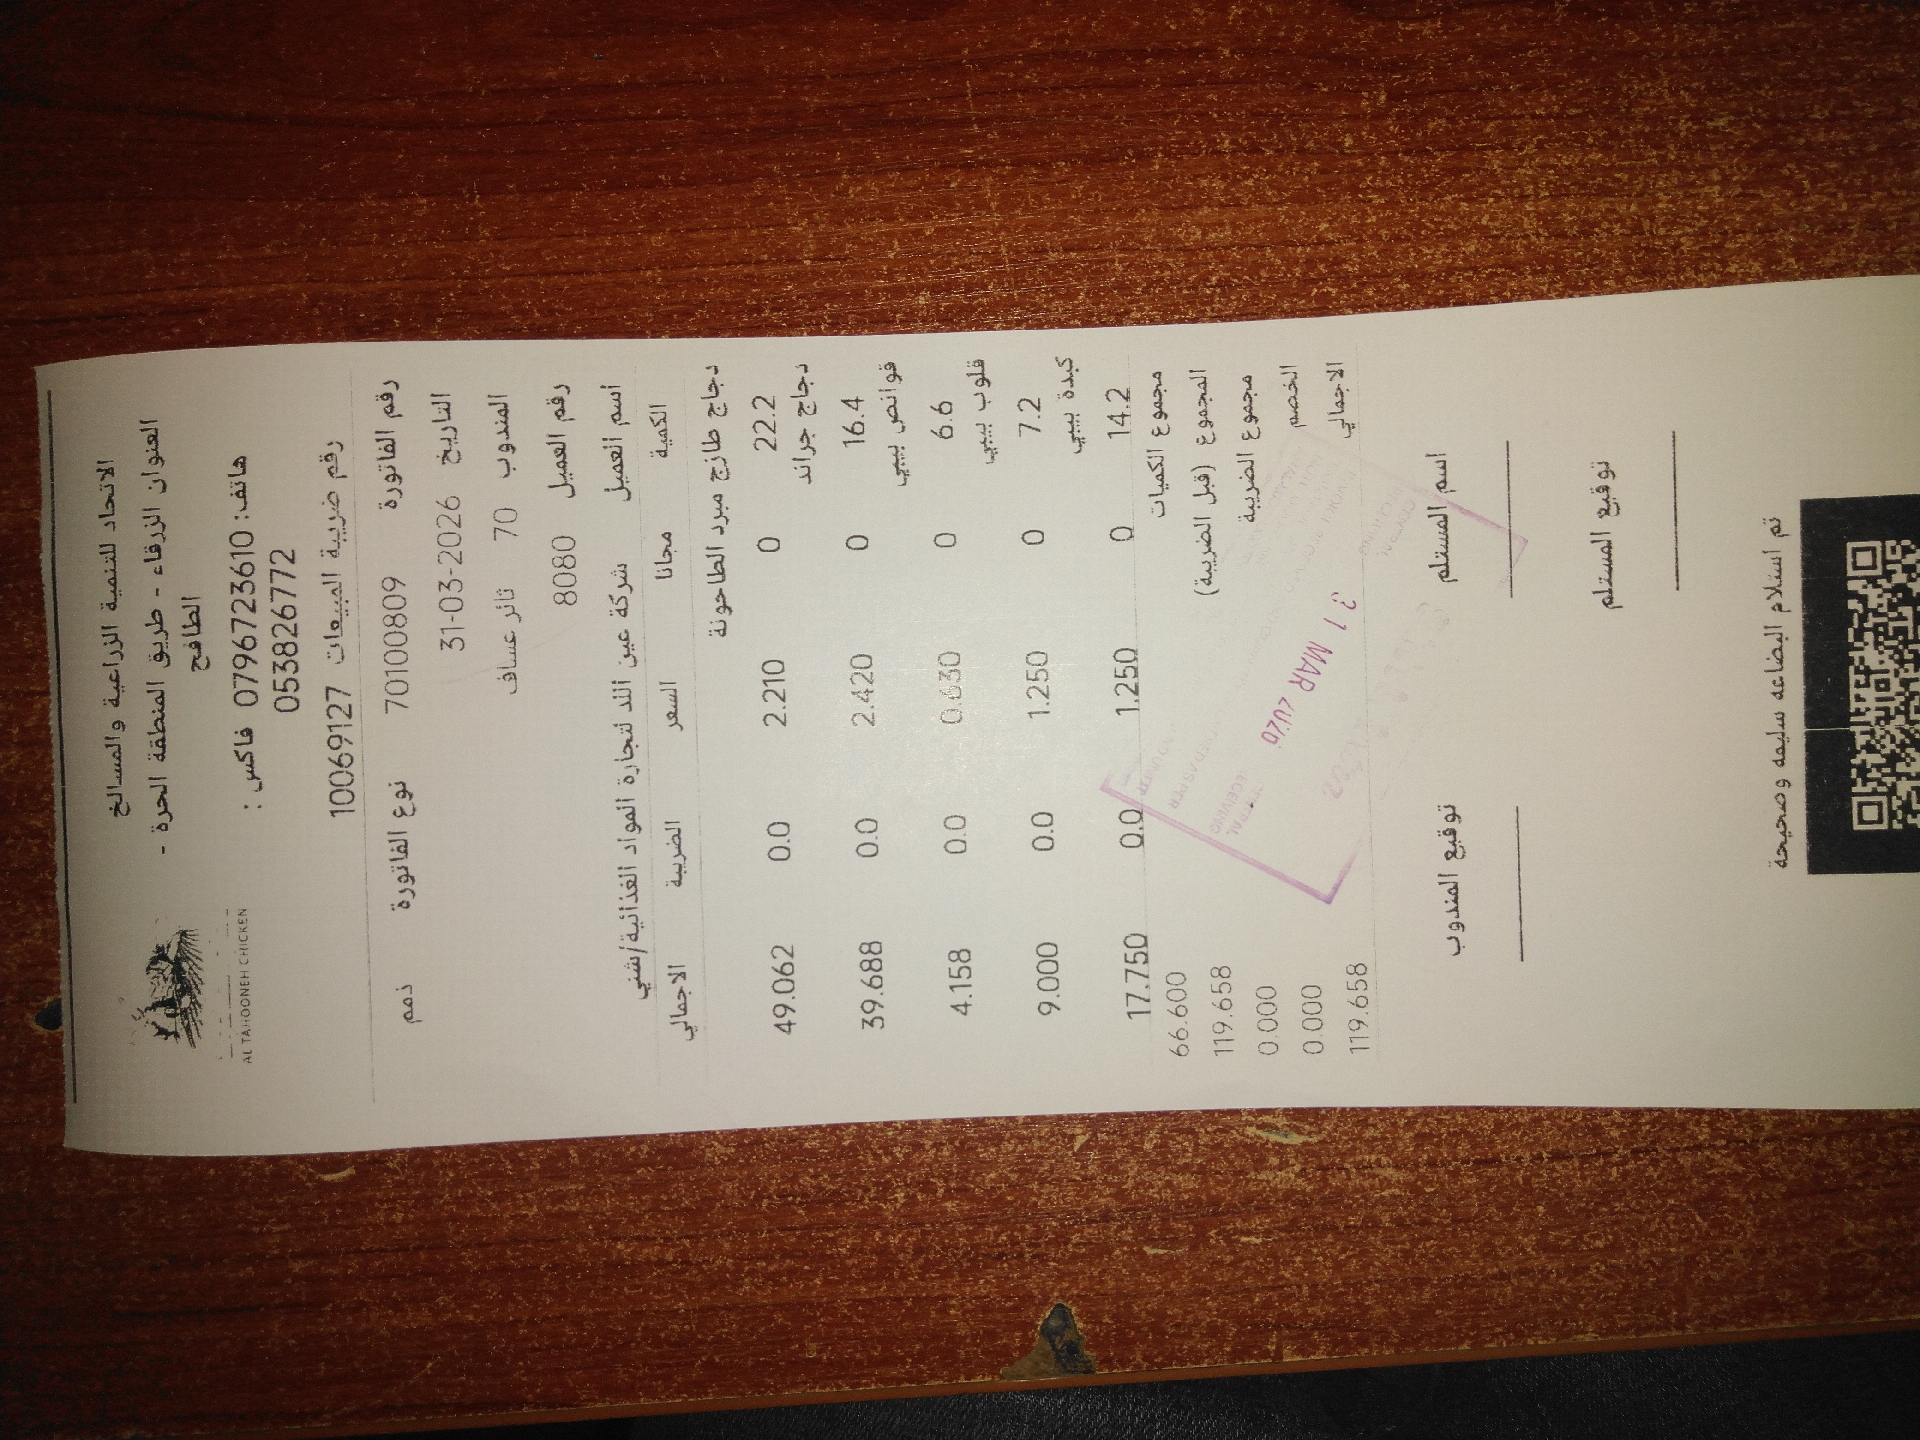 الاتحاد للتنمية الزراعية والمسالخ
العنوان الزرقاء - طريق المنطقة الحرة -
الطافح
هاتف: 0796723610 فاكس :
053826772
AL TAHOONEH CHICKEN
رقم ضريبة المبيعات 10069127
رقم الفاتورة 70100809 نوع الفاتورة ذمم
التاريخ 31-03-2026
المندوب 70 ثائر عساف
رقم العميل 8080
أسم العميل شركة عين اللد لتجارة المواد الغذائية/شني
الكمية مجانا السعر الضريبة الاجمالي
دجاج طازج مبرد الطاحونة
22.2 0 2.210 0.0 49.062
دجاج جراند
16.4 0 2.420 0.0 39.688
قوانص بيبي
6.6 0 0.630 0.0 4.158
قلوب بيبي
7.2 0 1.250 0.0 9.000
كبدة بيبي
14.2 0 1.250 0.0 17.750
مجموع الكميات 66.600
المجموع (قبل الضريبة) 119.658
مجموع الضريبة 0.000
الخصم 0.000
الاجمالي 119.658
31 MAR 2026
اسم المستلم توقيع المندوب
توقيع المستلم
تم استلام البضاعه سليمه وصحيحة